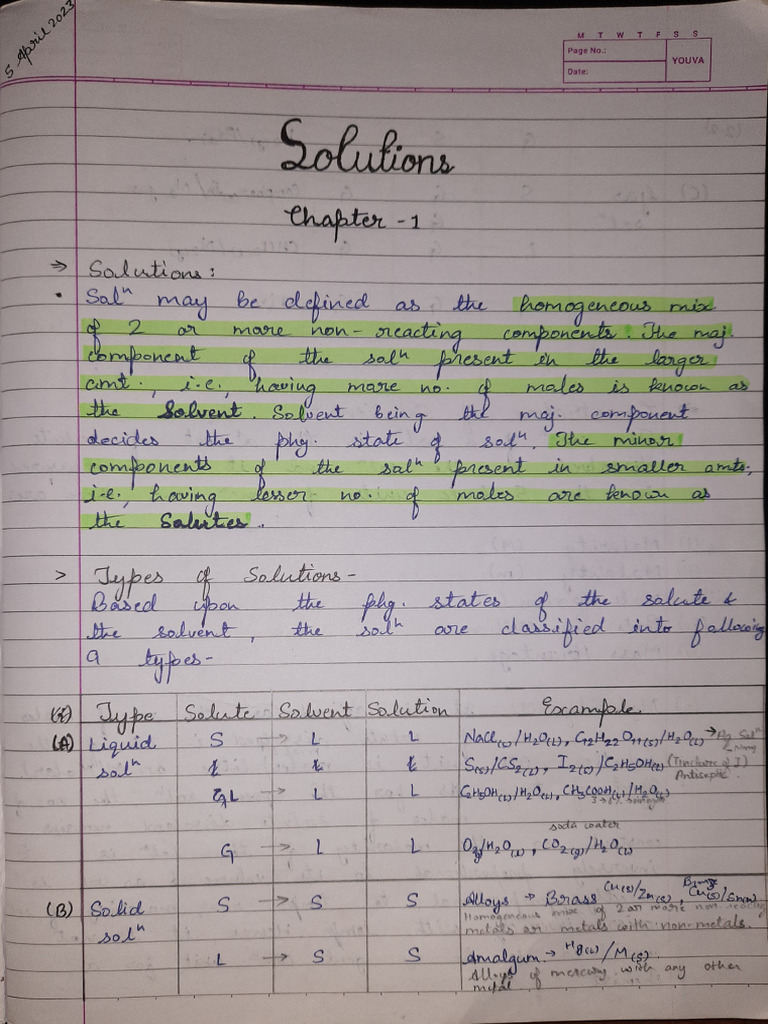 5 April 2023
M T W T F S S
Page No.:
Date:
YOUVA
Solutions
Chapter - 1
⇒ Solutions:
• Solⁿ may be defined as the homogeneous mix
of 2 or more non-reacting components. The maj.
component of the solⁿ present in the larger
amt., i.e., having more no. of moles is known as
the Solvent. Solvent being the maj. component
decides the phy. state of solⁿ. The minor
components of the solⁿ present in smaller amts,
i.e., having lesser no. of moles are known as
the Solutes.
> Types of Solutions -
Based upon the phy. states of the solute &
the solvent, the solⁿ are classified into following
9 types -
Type Solute Solvent Solution Example
(A) Liquid S → L L NaCl(s)/H2O(L), C12H22O11(s)/H2O(L) →
solⁿ S(s)/CS2(L), I2(s)/C2H5OH(L) (Tincture of I)
Antiseptic
L → L L C2H5OH(L)/H2O(L), CH3COOH(L)/H2O(L)
soda water
G → L L O2(g)/H2O(L), CO2(g)/H2O(L)
(B) Solid S → S S Alloys → Brass Cu(s)/Zn(s), Bronze Cu(s)/Sn(s)
solⁿ Homogeneous mix of 2 or more non reacting
metals or metals with non-metals.
L → S S Amalgum → Hg(L)/M(s)
Alloys of mercury with any other
metal